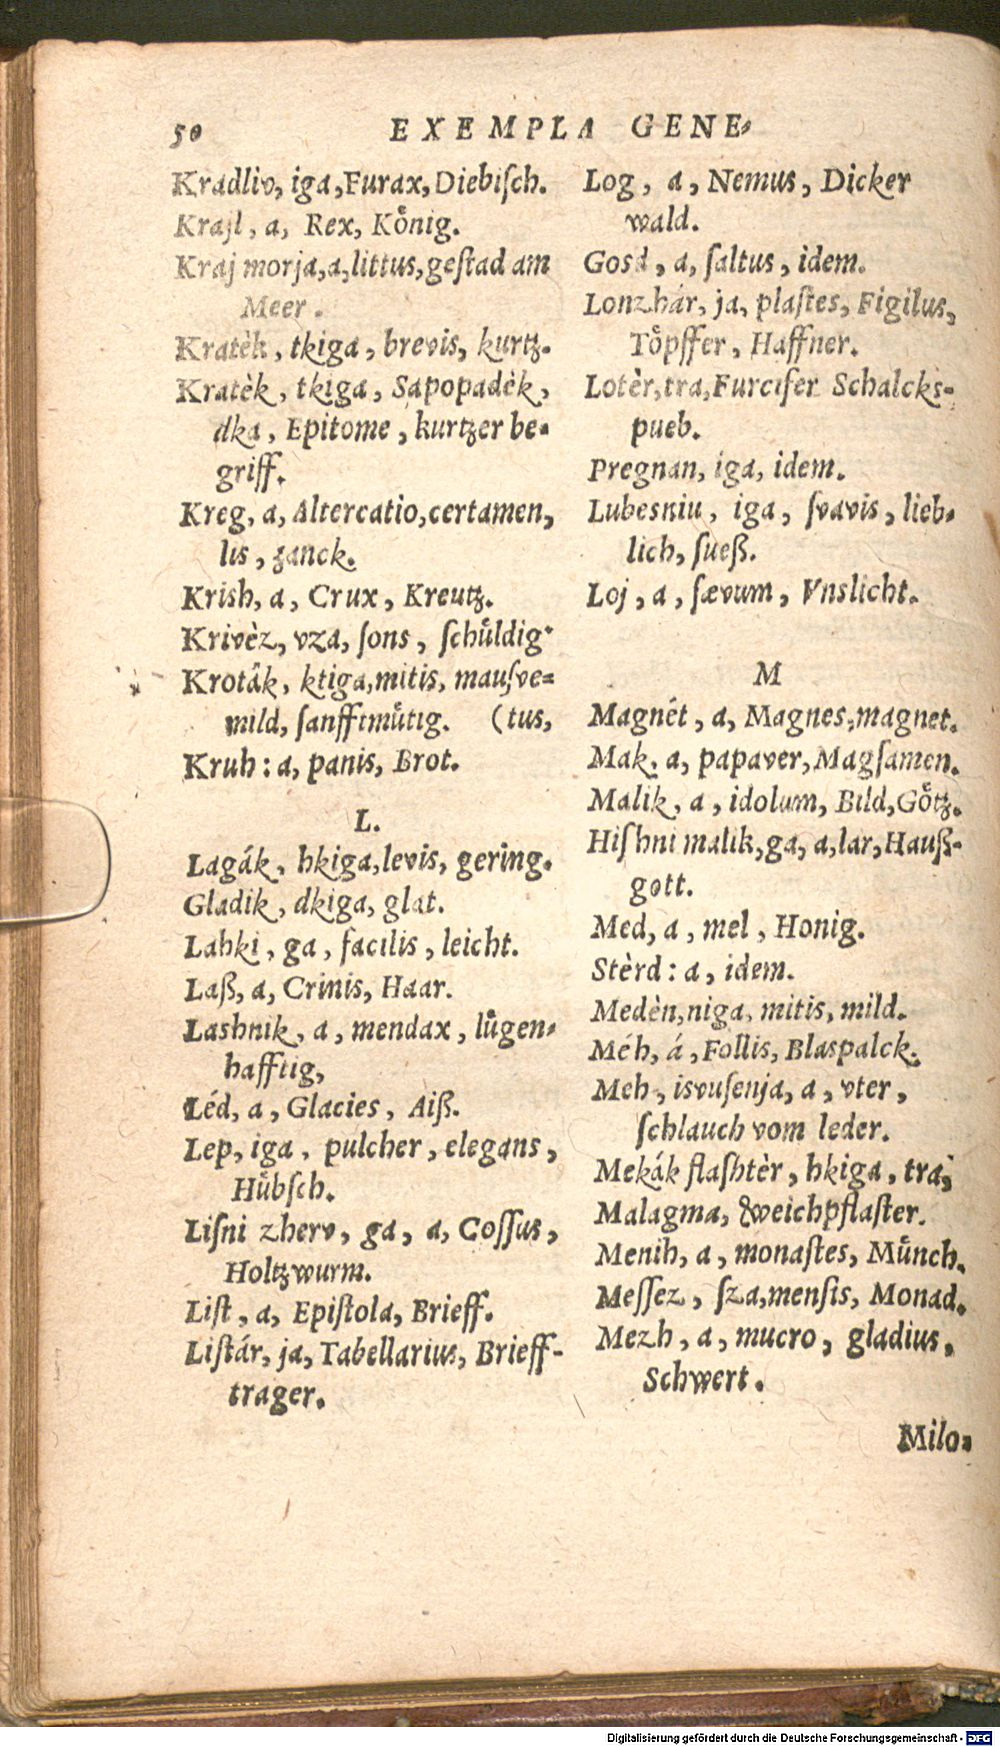 50 EXEMPLA GENE⸗
Kradliv, iga, Furax, Diebiſch.
Krajl, a, Rex, Koͤnig.
Kraj morja, a, littus, geſtad am
Meer.
Kratèk, tkiga, brevis, kurtz.
Kratèk, tkiga, Sapopadèk,
dka, Epitome, kurtzer be⸗
griff.
Kreg, a, Altercatio, certamen,
lis, zanck.
Krish, a, Crux, Kreutz.
Krivèz, vza, ſons, ſchuͤldig.
Krotâk, ktiga, mitis, mauſve⸗
mild, ſanfftmuͤtig. (tus,
Kruh: a, panis, Brot.
L.
Lagák, hkiga, levis, gering.
Gladik, dkiga, glat.
Lahki, ga, facilis, leicht.
Laß, a, Crinis, Haar.
Lashnik, a, mendax, luͤgen⸗
hafftig,
Léd, a, Glacies, Aiß.
Lep, iga, pulcher, elegans,
Huͤbſch.
Liſni zherv, ga, a, Coſſus,
Holtzwurm.
Liſt, a, Epiſtola, Brieff.
Liſtár, ja, Tabellarius, Brieff-
trager.
Log, a, Nemus, Dicker
wald.
Gosd, a, ſaltus, idem.
Lonzhár, ja, plaſtes, Figilus,
Toͤpffer, Haffner.
Lotèr, tra, Furcifer Schalcks-
pueb.
Pregnan, iga, idem.
Lubesniu, iga, ſvavis, lieb⸗
lich, ſueß.
Loj, a, ſævum, Vnslicht.
M
Magnét, a, Magnes, magnet.
Mak, a, papaver, Magſamen.
Malik, a, idolum, Bild, Goͤtz.
Hiſhni malik, ga, a, lar, Hauß-
gott.
Med, a, mel, Honig.
Stèrd: a, idem.
Medèn, niga, mitis, mild.
Méh, á, Follis, Blaspalck.
Meh, isvuſenja, a, vter,
ſchlauch vom leder.
Mekák flaſhtèr, hkiga, tra,
Malagma, Weichpflaſter.
Menih, a, monaſtes, Muͤnch.
Meſſez, ſza, menſis, Monad.
Mezh, a, mucro, gladius,
Schwert.
Milo⸗
Digitalisierung gefördert durch die Deutsche Forschungsgemeinschaft - DFG